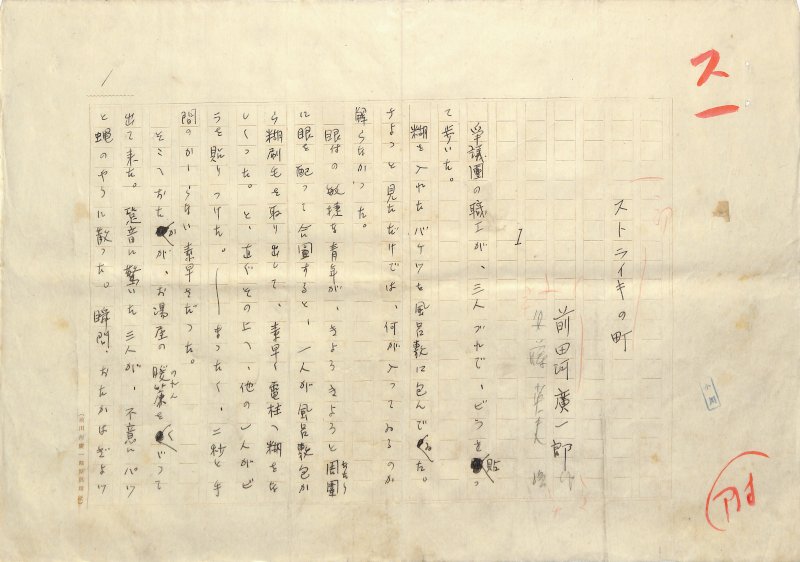 ス一
ストライキの町
前田河廣一郎作
I
爭議團の職工が、三人づれで、ビラを貼つ
て歩いた。
糊を入れたバケツを風呂敷に包んでゐた。
ちよつと見ただけでは、何が入つてゐるのか
解らなかつた。
眼付の敏捷な青年が、きよろきよろと周圍
に眼を配つて合圖すると、一人が風呂敷包か
ら糊刷毛を取り出して、素早く電柱へ糊をな
しくつた。と、直ぐその上へ、他の一人がビ
ラを貼りつけた。――まつたく、二秒と手
間のかゝらない素早さだつた。
そこへおたかが、お湯屋の暖簾をくゞつて
出て來た。跫音に驚いた三人が、不意にパツ
と蠅のやうに散つた。瞬間、おたかはぎよツ